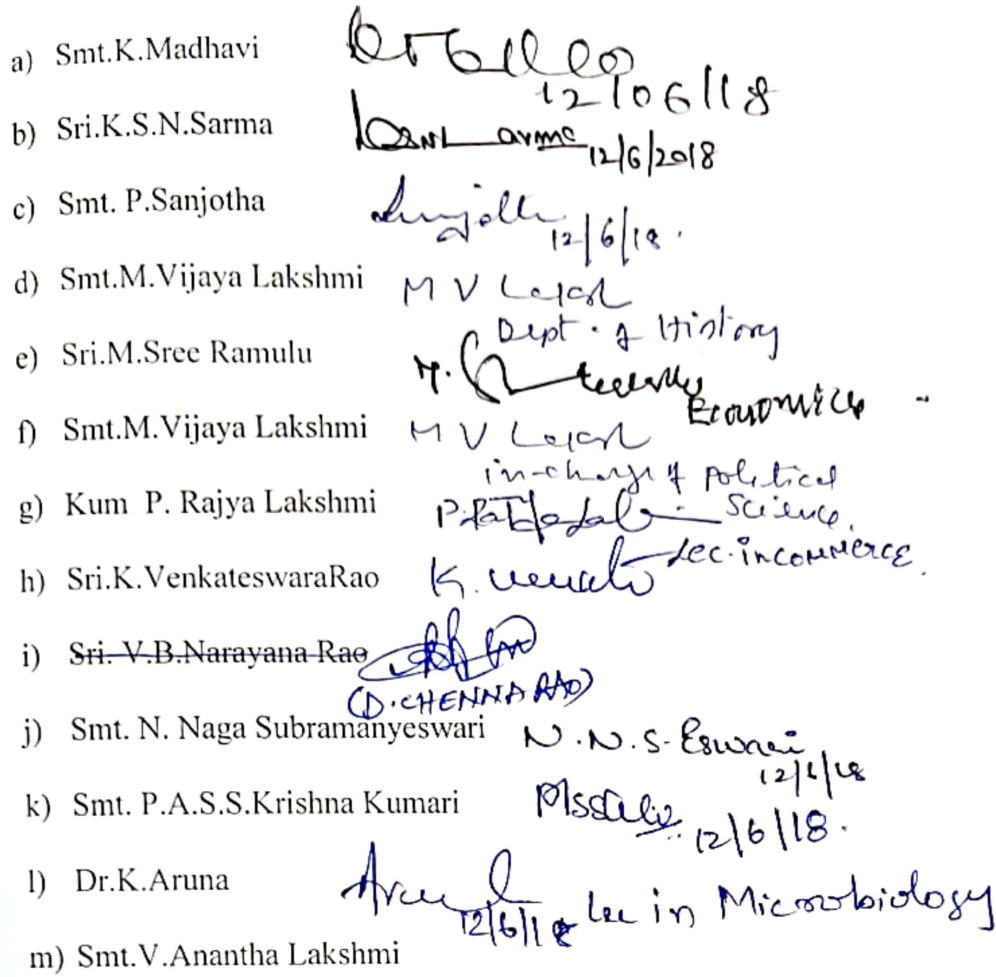 a) Smt.K.Madhavi
12/06/18
b) Sri.K.S.N.Sarma
12/6/2018
c) Smt. P.Sanjotha
12/6/18.
d) Smt.M.Vijaya Lakshmi M V
Dept. of History
e) Sri.M.Sree Ramulu M.
Economics
f) Smt.M.Vijaya Lakshmi M V
in-charge of Political
g) Kum P. Rajya Lakshmi Science.
h) Sri.K.VenkateswaraRao K. Lec. in commerce.
i) Sri. V.B.Narayana Rao
(D. CHENNA RAO)
j) Smt. N. Naga Subramanyeswari N.N.S. Eswari
12/6/18
k) Smt. P.A.S.S.Krishna Kumari
12/6/18.
l) Dr.K.Aruna
12/6/18 Lec in Microbiology
m) Smt.V.Anantha Lakshmi